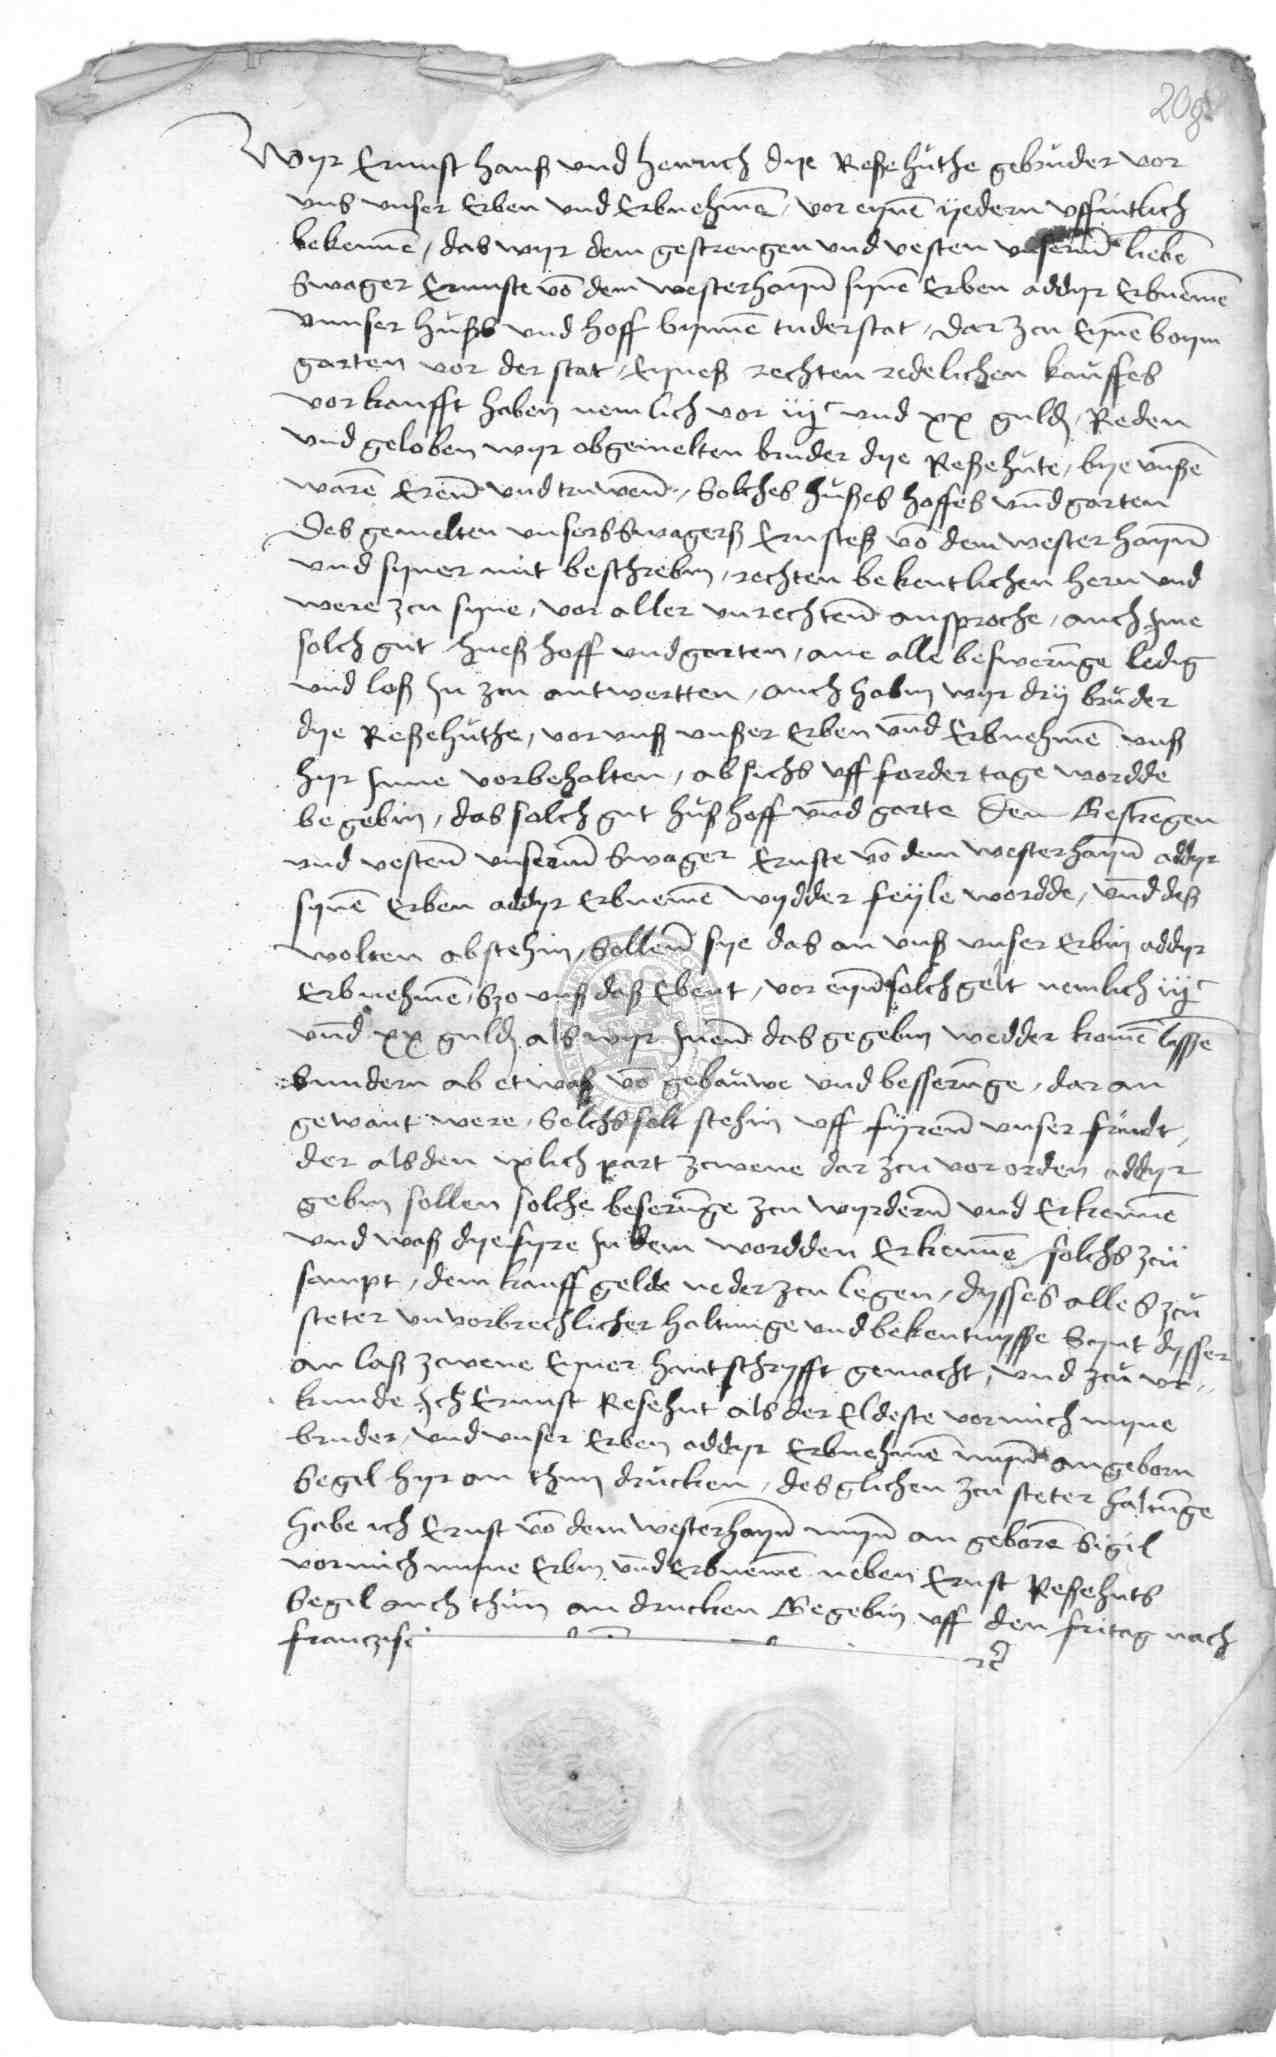 209
Wyr Ernnst Hanß vnd Henrich dye Reßehuthe gebruder vor
vns vnser Erben vnd Erbnehmē / vor eynē yedern vffintlich
bekennē / das wyr dem gestrengen vnd vesten vnserm̄ liebē
Swager Ernnste vō dem westerhayn̄ synē Erben addyr Erbnemē
vnnser hußs vnd hoff bynnē tuderstat / dar zcu Eynē boym
garten vor der stat / Eyneß rechten redelichen kauffes
vorkaufft haben nemlich vor iijc vnd xx guld / Reden
vnd geloben wyr obgemelten bruder dye Reßehute / bye vnßē
warē Eren̄ vnd truwen̄ / Solches hußes hoffes vn̄d garten
des gemelten vnsers Swagerß Ernsteß vō dem westerhayn̄
vnd syner mit beschrebin / rechten bekentlichen hern vnd
were zcu syne / vor aller vnrechten̄ ansproche / auch Jme
solch gut hueß hoff vnd garten / ane alle beswerūnge ledig
vnd loß Jn zcu antwertten / auch habin wyr dry bruder
dye Reßehuthe / vor vnß vnßer Erben vn̄d Erbnehmē vnß
hyr Jnne vorbehalten / ab sichs vff forder tage wordde
begebin / das solch gut huß hoff vn̄d garte dem Gestrēgen
vnd vesten̄ vnserm̄ Swager Ernste vō dem westerhayn̄ addyr
synē Erben addyr Erbnemē wydder feyle wordde / vn̄d deß
wolten abstehin / Sollen̄ sye das an vnß vnser Erbin addyr
Erbnehmē / Szo vnß daß Ebent / vor eyn̄ solch gelt nemlich iijc
vn̄d xx guld als wyr Jnen̄ das gegebin wedder komē lyssē
Sundern ab etwaß vō gebauwe vnd besserūnge / dar an
gewant were / Solchs solt stehin vff fyren̄ vnser frundt /
der als den iczlich part zcwene dar zcu vororden addyr
gebin sollen solche beserūnge zcu wyrdern̄ vnd Erkennē
vnd waß dye fyre Jn dem wordden Erkennē / solchs zcu
sampt / dem kauff gelde neder zcu legen / dysses alles zcu
steter vnvorbrechlicher haltunge vnd bekentnysse Synt dysser
an laß zcwene Eyner hantschryfft gemacht / vnd zcu vr„
kunde Jch Ernnst Resehut als der Eldeste vor mich myne
bruder / vnd vnser Erben addyr Erbnehmē myn̄ angeborn
Segil hyr an thun drucken / des glichen zcu steter haltūnge
habe ich Ernst vō dem westerhayn̄ myn̄ an geborē Sigil
vor mich myne Erbin vn̄d Erbnemē neben Ernst Reßehuts
Segil auch thun an drucken Gegebin vff den fritag nach
francisci